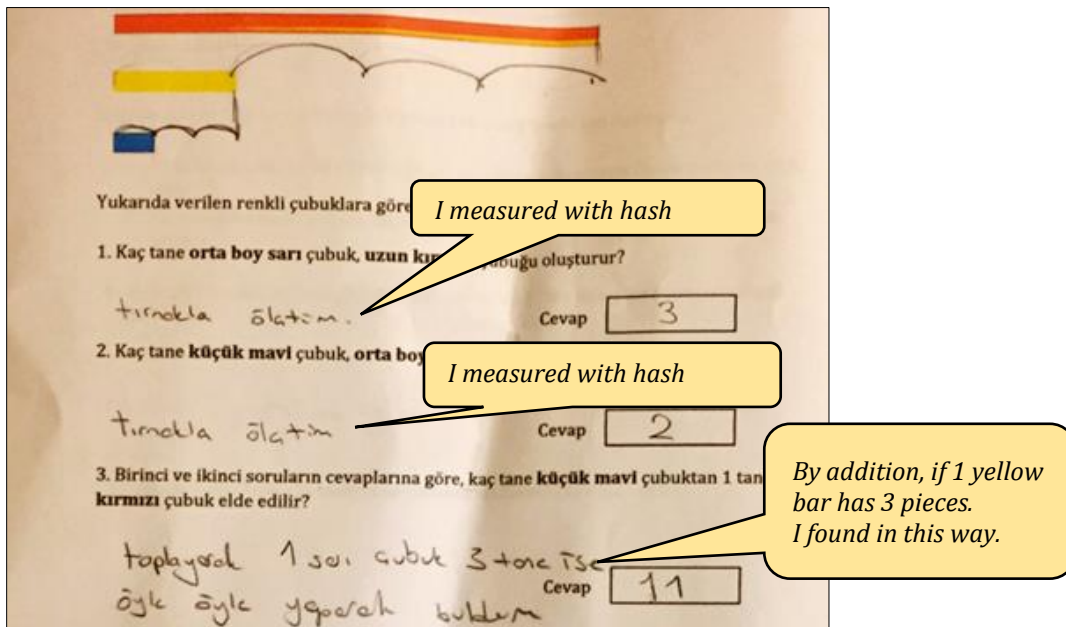 Yukarıda verilen renkli çubuklara göre
I measured with hash
1. Kaç tane orta boy sarı çubuk, uzun kır çubuğu oluşturur?
tırnakla ölçtüm.
Cevap 3
2. Kaç tane küçük mavi çubuk, orta boy
I measured with hash
tırnakla ölçtüm
Cevap 2
3. Birinci ve ikinci soruların cevaplarına göre, kaç tane küçük mavi çubuktan 1 tan
kırmızı çubuk elde edilir?
By addition, if 1 yellow
bar has 3 pieces.
I found in this way.
toplayarak 1 sarı çubuk 3 tane ise
Cevap 11
öyle öyle yaparak buldum